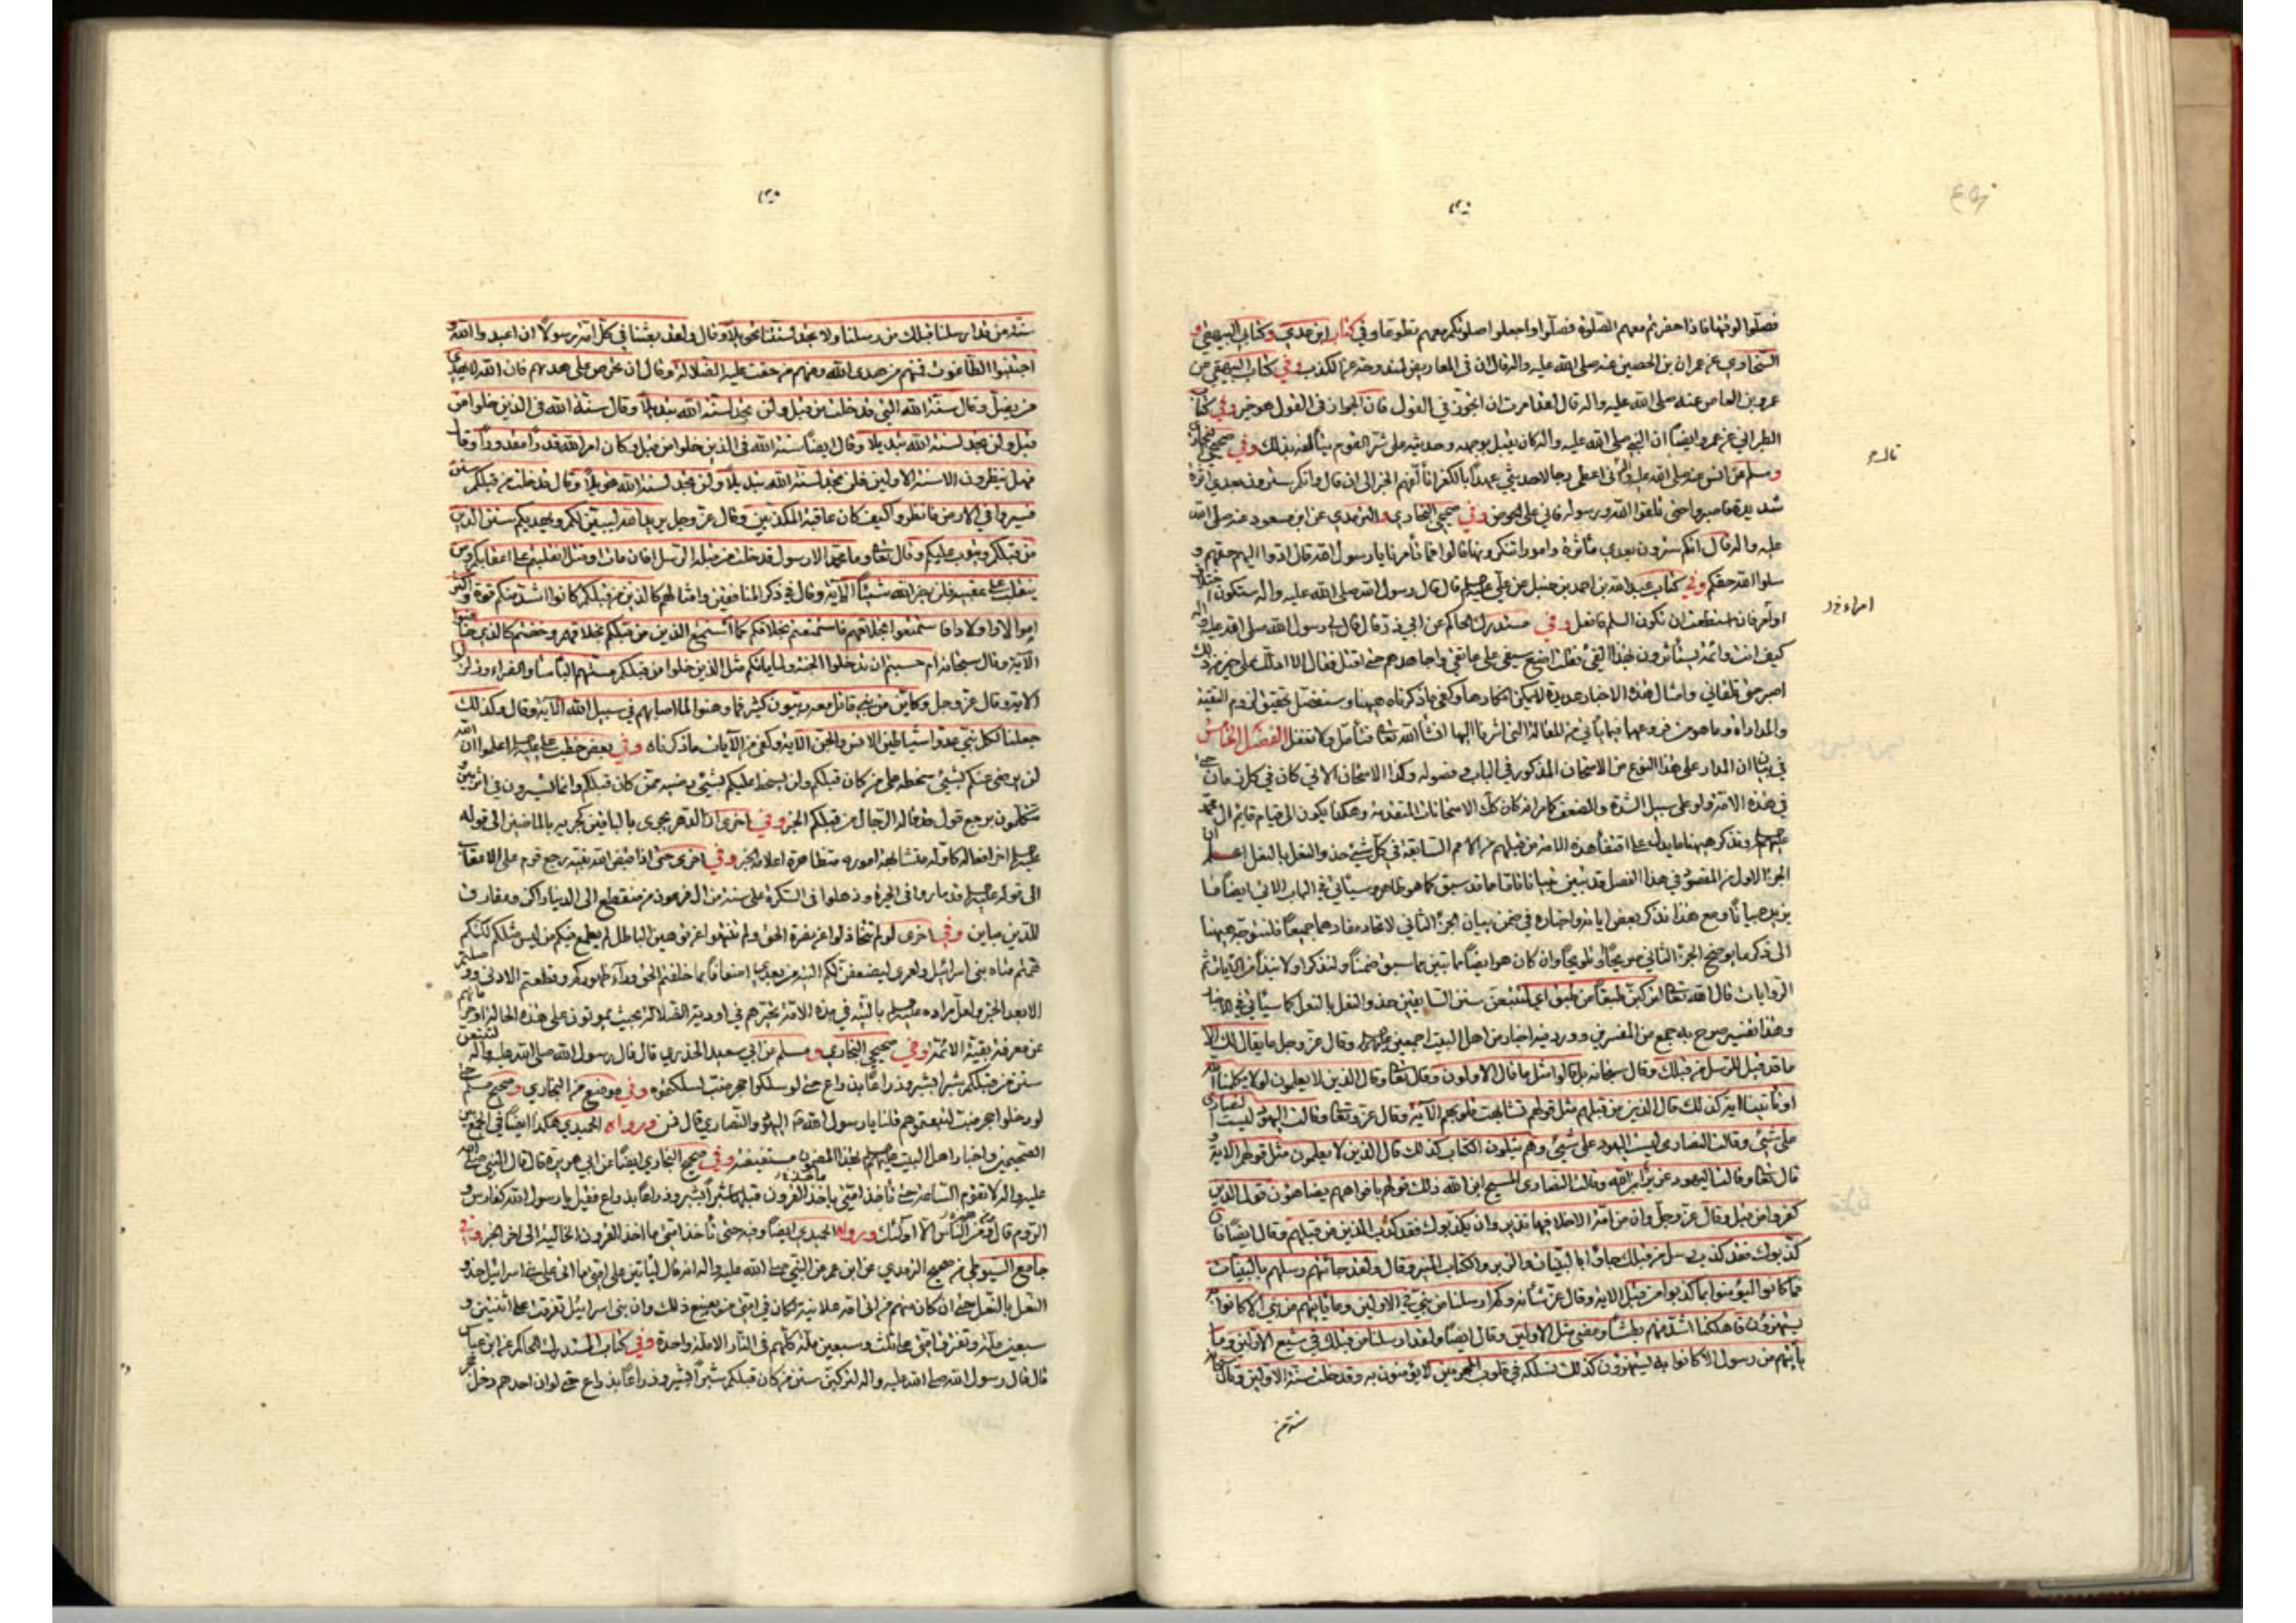 فصلّوا لوقتها فاذا حضرتم معهم الصّلوة فصلّوا واجعلوا صلوتكم معهم تطوّعا وفي كتاب ابن عدي وكتابي البيهقي و
السّخاوي عن عمران بن الحصين عنه صلى الله عليه واله قال ان في المعاريض لمندوحة عن الكذب وفي كتاب البيهقي عن
عمرو بن العاص عنه صلى الله عليه واله قال لقد امرت ان اتجوز في القول فان الجواز في القول هو خير وفي كتاب
الطبراني عن عمرو ايضاً ان النبي صلى الله عليه واله كان يقبل بوجهه وحديثه على شر القوم يتألفه بذلك وفي صحيحي البخاري
ومسلم عن انس عنه صلى الله عليه واله اني اعطي رجالا حديثي عهد بالكفر اتألفهم الخبر الى ان قال وانكم سترون بعدي اثرة
شديدة فاصبروا حتى تلقوا الله ورسوله فاني على الحوض وفي صحيحي البخاري والترمذي عن ابن مسعود عنه صلى الله
عليه واله قال انكم سترون بعدي اثرة وامورا تنكرونها قالوا فما تأمرنا يا رسول الله قال ادوا اليهم حقهم و
سلوا الله حقكم وفي كتاب عبد الله بن احمد بن حنبل عن علي قال قال رسول الله صلى الله عليه واله ستكون
او امر فان استطعت ان تكون السلم فافعل وفي مستدرك الحاكم عن ابي ذر قال قال لي رسول الله صلى الله عليه واله
كيف انت وائمة يستأثرون بهذا الفيء فقلت اضع سيفي على عاتقي واجاهدهم حتى اقتل فقال الا ادلك على خير من ذلك
اصبر حتى تلقاني وامثال هذه الاخبار عديدة لا يمكن انكارها وكفى ما ذكرناه هيهنا وسنفصل تحقيق لزوم التقية
والمداراة وما هو من فروعهما فيما يأتي من المقالة التي اشرنا اليها انشاء الله تعالى فتأمل ولا تغفل الفصل الخامس
في بيان ان المدار على هذا النوع من الامتحان المذكور في الباب وفصوله وكذا الامتحان الاتي كان في كل زمان حتى
في هذه الامة ولو على سبيل الشدة والضعف كما مر انه كان كك الامتحانات المتقدمة وهكذا يكون الى قيام قائم ال محمد
عليهم السلام ونذكر هيهنا ما يدل على اقتفاء هذه الامة من قبلهم من الامم السابقة في كل شيء حذو النعل بالنعل اعلم ان
الجزء الاول من المقصود في هذا الفصل قد تبين فيما سبق كما هو ظاهر وسيأتي في الباب الاتي ايضا ما
يزيد بيانا ومع هذا نذكر بعض اياته واخباره في ضمن بيان الجزء الثاني لاتحاد مفادهما جميعاً فلنتوجه هيهنا
الى ذكر ما يوضح الجزء الثاني صريحاً وتلويحاً وان كان هو ايضاً مما تبين مما سبق ضمناً ولنذكر اولا نبذاً من الآيات ثم
الروايات قال الله تعالى لتركبن طبقاً عن طبق اي لتتبعن سنن السابقين حذو النعل بالنعل كما سيأتي في الاخبار
وهذا تفسير صرح به جمع من المفسرين وورد فيه اخبار من اهل البيت اجمعين وقال عز وجل ما يقال لك الا
ما قد قيل للرسل من قبلك وقال سبحانه بل قالوا مثل ما قال الاولون وقال تعالى وقال الذين لا يعلمون لولا يكلمنا الله
او تأتينا اية كذلك قال الذين من قبلهم مثل قولهم تشابهت قلوبهم الآية وقال عز وتعالى وقالت اليهود ليست النصارى
على شيء وقالت النصارى ليست اليهود على شيء وهم يتلون الكتاب كذلك قال الذين لا يعلمون مثل قولهم الآية و
قال تعالى وقالت اليهود عزير ابن الله وقالت النصارى المسيح ابن الله ذلك قولهم بافواههم يضاهئون قول الذين
كفروا من قبل وقال عز وجل وان من امة الا خلا فيها نذير وان يكذبوك فقد كذب الذين من قبلهم وقال ايضاً فان
كذبوك فقد كذب رسل من قبلك جاؤا بالبينات والزبر والكتاب المنير وقال ولقد جائتهم رسلهم بالبينات
فما كانوا ليؤمنوا بما كذبوا من قبل الاية وقال عز شأنه وكم ارسلنا من نبي في الاولين وما يأتيهم من نبي الا كانوا به
يستهزؤن فاهلكنا اشد منهم بطشا ومضى مثل الاولين وقال ايضا ولقد ارسلنا من قبلك في شيع الاولين وما
يأتيهم من رسول الا كانوا به يستهزؤن كذلك نسلكه في قلوب المجرمين لا يؤمنون به وقد خلت سنة الاولين وقال
سنة من
سنة من قد ارسلنا قبلك من رسلنا ولا تجد لسنتنا تحويلا وقال ولقد بعثنا في كل امة رسولاً ان اعبدوا الله و
اجتنبوا الطاغوت فمنهم من هدى الله ومنهم من حقت عليه الضلالة وقال ان تحرص على هديهم فان الله لا يهدي
من يضل وقال سنة الله التي قد خلت من قبل ولن تجد لسنة الله تبديلا وقال سنة الله في الذين خلوا من
قبل ولن تجد لسنة الله تبديلا وقال ايضا سنة الله في الذين خلوا من قبل وكان امر الله قدراً مقدوراً وقال
فهل ينظرون الا سنة الاولين فلن تجد لسنة الله تبديلاً ولن تجد لسنة الله تحويلاً وقال قد خلت من قبلكم سنن
فسيروا في الارض فانظروا كيف كان عاقبة المكذبين وقال عز وجل يريد الله ليبين لكم ويهديكم سنن الذين
من قبلكم ويتوب عليكم وقال تعالى وما محمد الا رسول قد خلت من قبله الرسل افان مات او قتل انقلبتم على اعقابكم ومن
ينقلب على عقبيه فلن يضر الله شيئاً الآية وقال في ذكر المنافقين وامثالهم كالذين من قبلكم كانوا اشد منكم قوة واكثر
اموالا واولادا فاستمتعوا بخلاقهم فاستمتعتم بخلاقكم كما استمتع الذين من قبلكم بخلاقهم وخضتم كالذي خاضوا
الآية وقال سبحانه ام حسبتم ان تدخلوا الجنة ولما يأتكم مثل الذين خلوا من قبلكم مستهم البأساء والضراء وزلزلوا
الاية وقال عز وجل وكاين من نبي قاتل معه ربيون كثير فما وهنوا لما اصابهم في سبيل الله الآية وقال وكذلك
جعلنا لكل نبي عدوا شياطين الانس والجن الآية وكفى من الآيات ما ذكرناه وفي بعض خطب علي عليه السلام اعلموا ان الله
لن يرضى عنكم بشيء سخطه على من كان قبلكم ولن يسخط عليكم بشيء رضيه ممن كان قبلكم وانما تسيرون في اثر بين و
تتكلمون برجع قول قد قاله الرجال من قبلكم الخبر وفي اخرى ان الدهر يجري بالباقين كجريه بالماضين الى قوله
عليه السلام اخر افعاله كاوله متشابهة اموره متظاهرة اعلامه الخبر وفي اخرى حتى اذا قبض الله نبيه رجع قوم على الاعقاب
الى قوله عليه السلام قد ماروا في الحيرة وذهلوا في السكرة على سنة من ال فرعون من منقطع الى الدنيا راكن ومفارق
للدين مباين وفي اخرى لو لم تتخاذلوا عن نصرة الحق ولم تهنوا عن توهين الباطل لم يطمع فيكم من ليس مثلكم لكنكم
تهتم متاه بني اسرائيل ولعمري ليضعفن لكم التيه من بعدي اضعافا بما خلفتم الحق وراء ظهوركم وقطعتم الادنى ووصلتم
الابعد الخبر ولعل مراده عليه السلام بالتيه في هذه الامة تحيرهم في اودية الضلالة بحيث يموتون على هذه الحالة
عن معرفة بقية الائمة وفي صحيحي البخاري ومسلم عن ابي سعيد الخدري قال قال رسول الله صلى الله عليه واله لتتبعن
سنن من قبلكم شبرا بشبر وذراعا بذراع حتى لو سلكوا جحر ضب لسلكتموه وفي موضع من البخاري وصحيح مسلم حتى
لو دخلوا جحر ضب لتبعتموهم قلنا يا رسول الله اليهود والنصارى قال فمن ورواه الحميدي هكذا ايضا في الجمع بين
الصحيحين واخبار اهل البيت عليهم السلام بهذا المضمون مستفيضة وفي صحيح البخاري ايضا عن ابي هريرة قال قال النبي صلى الله
عليه واله لا تقوم الساعة حتى تأخذ امتي ما اخذ القرون قبلها شبراً بشبر وذراعا بذراع فقيل يا رسول الله كفارس و
الروم قال ومن الناس الا اولئك ورواه الحميدي ايضا وفيه حتى تأخذ امتي ما اخذ القرون الخالية الى اخر الخبر وفي
جامع السيوطي من صحيح الترمذي عن ابن عمر عن النبي صلى الله عليه واله انه قال ليأتين على امتي ما اتى على بني اسرائيل حذو
النعل بالنعل حتى ان كان منهم من اتى امه علانية لكان في امتي من يصنع ذلك وان بني اسرائيل تفرقت على اثنتين و
سبعين ملة وتفترق امتي على ثلث وسبعين ملة كلهم في النار الا ملة واحدة وفي كتاب المستدرك للحاكم عن ابن عباس
قال قال رسول الله صلى الله عليه واله لتركبن سنن من كان قبلكم شبراً بشبر وذراعاً بذراع حتى لو ان احدهم دخل